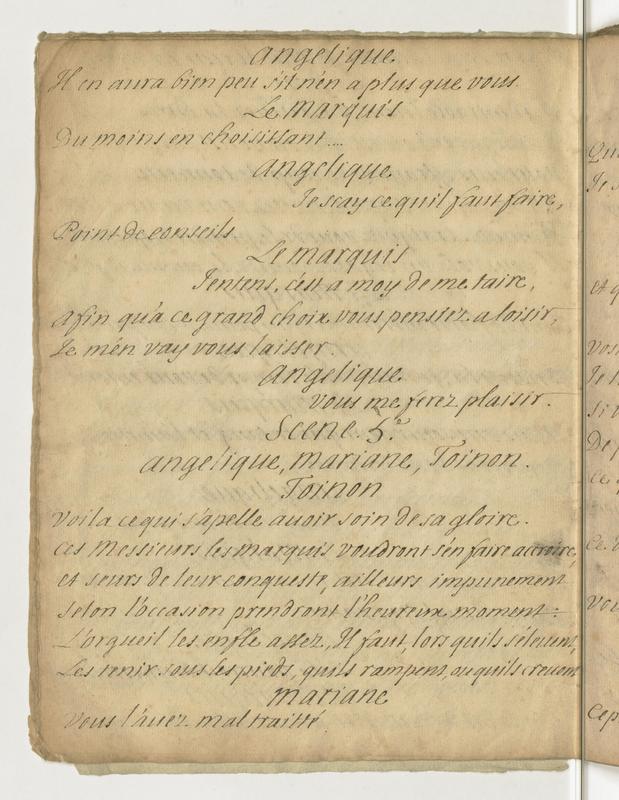 angelique
Il en aura bien peu s'il n'en a plus que vous.
Le marquis
Du moins en choisissant....
angelique
Je scay ce quil faut faire,
Point de conseils
Le marquis
J'entens, c'est a moy de me taire,
Afin qu'a ce grand choix vous pensiez a loisir,
Je m'en vay vous laisser.
angelique
vous me ferez plaisir.
Scene. 5.e
angelique, mariane, Toinon.
Toinon
Voila ce qui s'apelle avoir soin de sa gloire.
Ces Messieurs les marquis voudront s'en faire accroire,
et seurs de leur conqueste, ailleurs impunement
selon l'occasion prendront l'heureux moment:
L'orgueil les enfle assez, Il faut, lors quils s'elevent,
Les tenir sous les pieds, quils rampent, ou quils crevent
mariane
vous l'avez mal traitté.